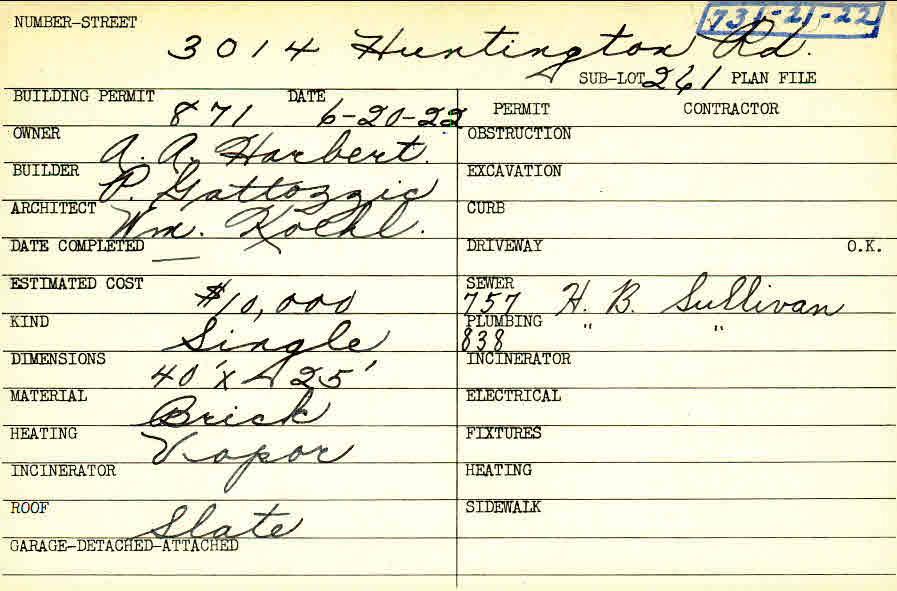 NUMBER-STREET 731-21-22
3014 Huntington Rd.
SUB-LOT 261 PLAN FILE
BUILDING PERMIT 871 DATE 6-20-22 PERMIT CONTRACTOR
OWNER A. A. Harbert. OBSTRUCTION
BUILDER P. Gattozzic EXCAVATION
ARCHITECT Wm. Koehl. CURB
DATE COMPLETED — DRIVEWAY O.K.
ESTIMATED COST $10,000 SEWER 757 H. B. Sullivan
KIND Single PLUMBING 838 " "
DIMENSIONS 40' x 25' INCINERATOR
MATERIAL Brick ELECTRICAL
HEATING Vapor FIXTURES
INCINERATOR HEATING
ROOF Slate SIDEWALK
GARAGE-DETACHED-ATTACHED